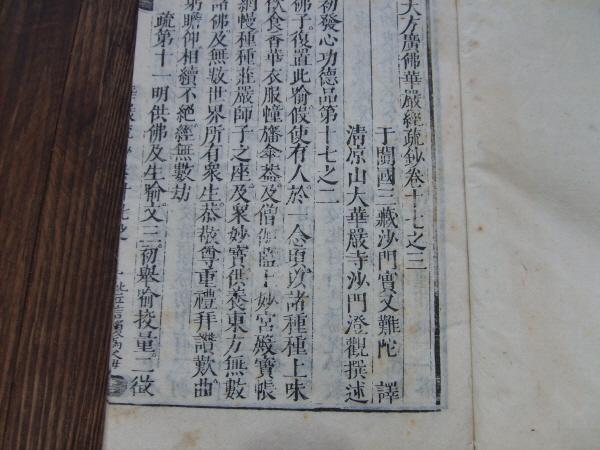 大方廣佛華嚴經疏鈔卷十七之三
于闐國三藏沙門實叉難陀 譯
清涼山大華嚴寺沙門澄觀撰述
初發心功德品第十七之二
佛子復置此喻假使有人於一念頃以諸種種上味
飲食香華衣服幢旛傘葢及僧伽藍上妙宮殿寶帳
網幔種種莊嚴師子之座及衆妙寶供養東方無數
諸佛及無數世界所有衆生恭敬尊重禮拜讚歎曲
躬瞻仰相續不絶經無數劫
疏第十一明供佛及生喻文三初舉喻挍量二徵